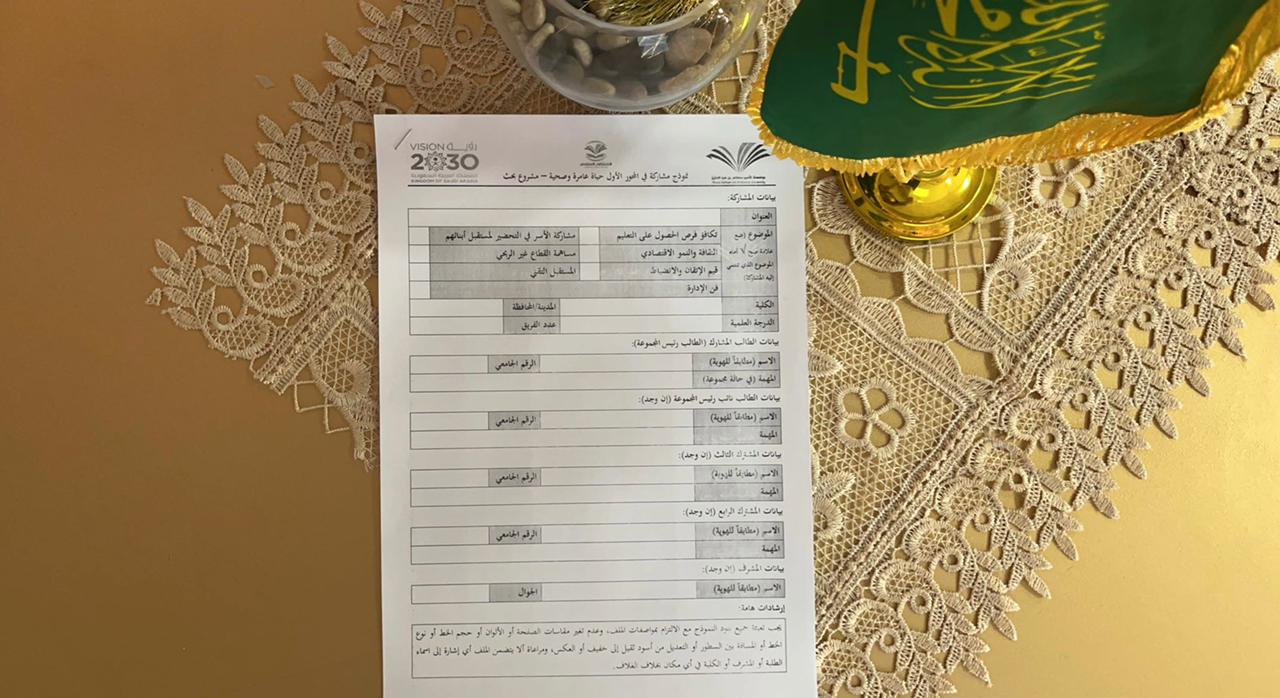 VISION رؤيــة
2030
المملكة العربية السعودية
KINGDOM OF SAUDI ARABIA
نموذج مشاركة في المحور الأول حياة عامرة وصحية – مشروع بحث
بيانات المشاركة:
العنوان
الموضوع (ضع علامة صح √ أمام الموضوع الذي تنتمي إليه المشاركة)
تكافؤ فرص الحصول على التعليم
مشاركة الأسر في التحضير لمستقبل أبنائهم
الثقافة والنمو الاقتصادي
مساهمة القطاع غير الربحي
قيم الإتقان والانضباط
المستقبل التقني
فن الإدارة
الكلية
المدينة/المحافظة
الدرجة العلمية
عدد الفريق
بيانات الطالب المشارك (الطالب رئيس المجموعة):
الاسم (مطابقاً للهوية)
الرقم الجامعي
المهمة (في حالة مجموعة)
بيانات الطالب نائب رئيس المجموعة (إن وجد):
الاسم (مطابقاً للهوية)
الرقم الجامعي
المهمة
بيانات المشترك الثالث (إن وجد):
الاسم (مطابقاً للهوية)
الرقم الجامعي
المهمة
بيانات المشترك الرابع (إن وجد):
الاسم (مطابقاً للهوية)
الرقم الجامعي
المهمة
بيانات المشرف (إن وجد):
الاسم (مطابقاً للهوية)
الجوال
إرشادات هامة:
يجب تعبئة جميع بنود النموذج مع الالتزام بمواصفات الملف، وعدم تغير مقاسات الصفحة أو الألوان أو حجم الخط أو نوع
الخط أو المسافة بين السطور أو التعديل من أسود ثقيل إلى خفيف أو العكس، ومراعاة ألا يتضمن الملف أي إشارة إلى اسماء
الطلبة أو المشرف أو الكلية في أي مكان بخلاف الغلاف.